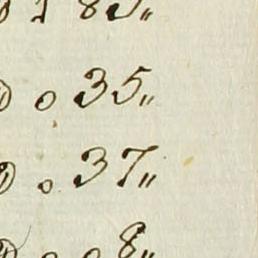 1 85 〃
@ 0 . 35 〃
@ 0 . 37 〃
@ 0 0 8 〃